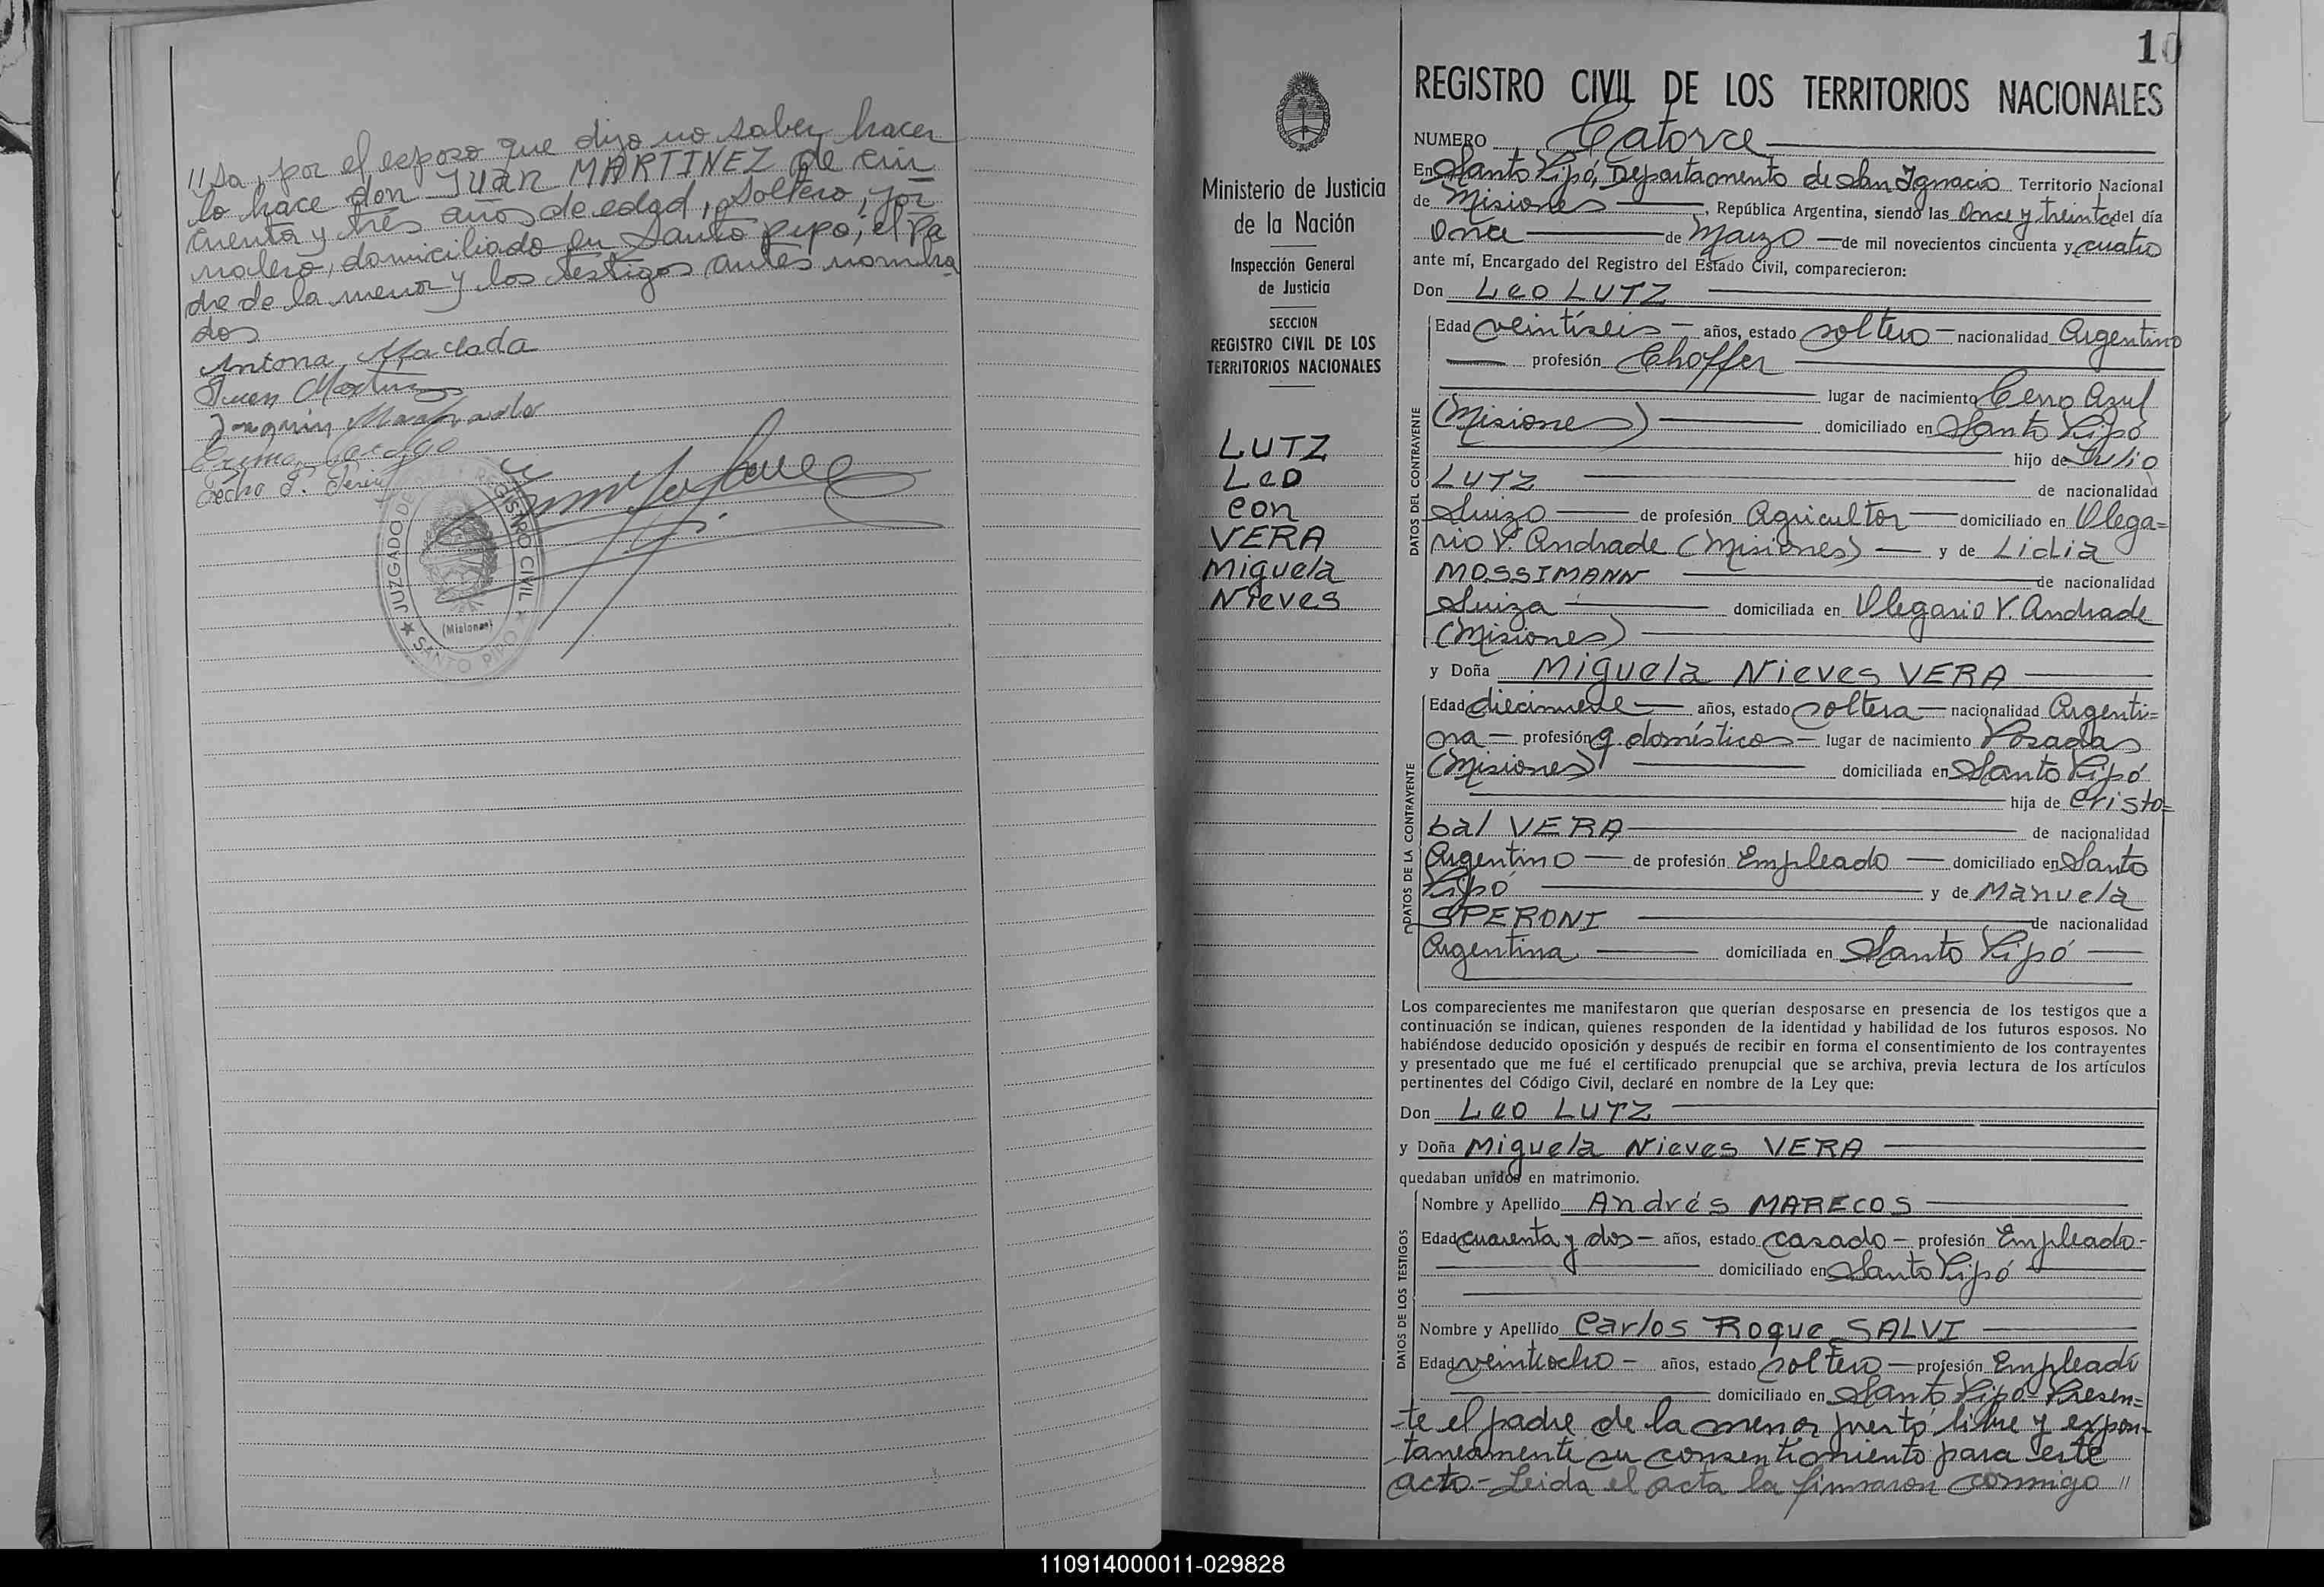 //sa, por el esposo que dijo no saber hacer
lo hace don JUAN MARTINEZ de cin
cuenta y tres años de edad, soltero, jor
nalero, domiciliado en Santo Pipó; el Pa
dre de la menor y los testigos antes nombra
dos
Antona Maclada
Juan Martinez
Joaquin
JUZGADO DE PAZ Y REGISTRO CIVIL
(Misiones)
★ SANTO PIPO ★
10
REGISTRO CIVIL DE LOS TERRITORIOS NACIONALES
Ministerio de Justicia
de la Nación
Inspección General
de Justicia
SECCION
REGISTRO CIVIL DE LOS
TERRITORIOS NACIONALES
LUTZ
Leo
con
VERA
Miguela
Nieves
NUMERO Catorce
En Santo Pipó, Departamento de San Ignacio Territorio Nacional
de Misiones, República Argentina, siendo las Once y treinta del día
Once de Marzo de mil novecientos cincuenta y cuatro
ante mí, Encargado del Registro del Estado Civil, comparecieron:
Don Leo LUTZ
DATOS DEL CONTRAYENTE
Edad veintiseis años, estado soltero nacionalidad Argentino
profesión Choffer
lugar de nacimiento Cerro Azul
(Misiones) domiciliado en Santo Pipó
hijo de Julio
LUTZ de nacionalidad
Suizo de profesión Agricultor domiciliado en Olega=
rio V. Andrade (Misiones) y de Lidia
MOSSIMANN de nacionalidad
Suiza domiciliada en Olegario V. Andrade
(Misiones)
y Doña Miguela Nieves VERA
DATOS DE LA CONTRAYENTE
Edad diecinueve años, estado soltera nacionalidad Argenti=
na profesión q. domésticos lugar de nacimiento Posadas
(Misiones) domiciliada en Santo Pipó
hija de Cristo=
bal VERA de nacionalidad
Argentino de profesión Empleado domiciliado en Santo
Pipó y de Manuela
SPERONI de nacionalidad
Argentina domiciliada en Santo Pipó
Los comparecientes me manifestaron que querían desposarse en presencia de los testigos que a
continuación se indican, quienes responden de la identidad y habilidad de los futuros esposos. No
habiéndose deducido oposición y después de recibir en forma el consentimiento de los contrayentes
y presentado que me fué el certificado prenupcial que se archiva, previa lectura de los artículos
pertinentes del Código Civil, declaré en nombre de la Ley que:
Don Leo LUTZ
y Doña Miguela Nieves VERA
quedaban unidos en matrimonio.
DATOS DE LOS TESTIGOS
Nombre y Apellido Andrés MARECOS
Edad cuarenta y dos años, estado casado profesión Empleado
domiciliado en Santo Pipó
Nombre y Apellido Carlos Roque SALVI
Edad veintiocho años, estado soltero profesión Empleado
domiciliado en Santo Pipó - Presen=
te el padre de la menor prestó libre y expon-
taneamente su consentimiento para este
acto.- Leida el acta la firmaron conmigo //
110914000011-029828